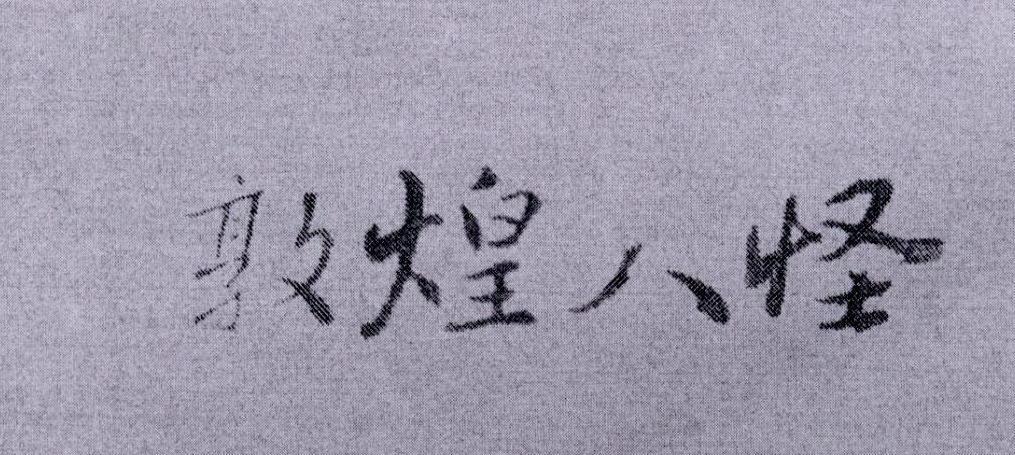 敦煌八怪